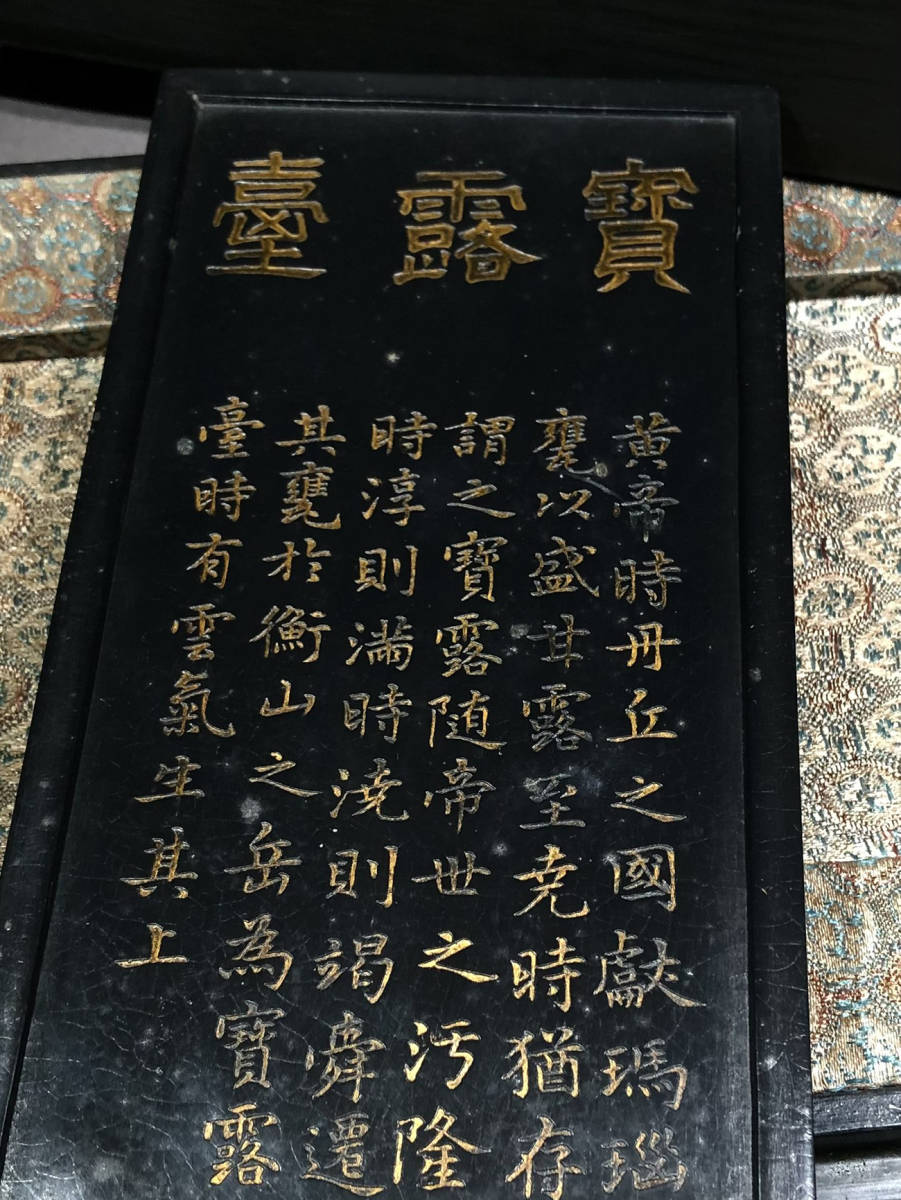 寶露臺
黃帝時丹丘之國獻瑪瑙
甕以盛甘露至堯時猶存
謂之寶露隨帝世之污隆
時淳則滿時澆則竭舜遷
其甕於衡山之岳為寶露
臺時有雲氣生其上